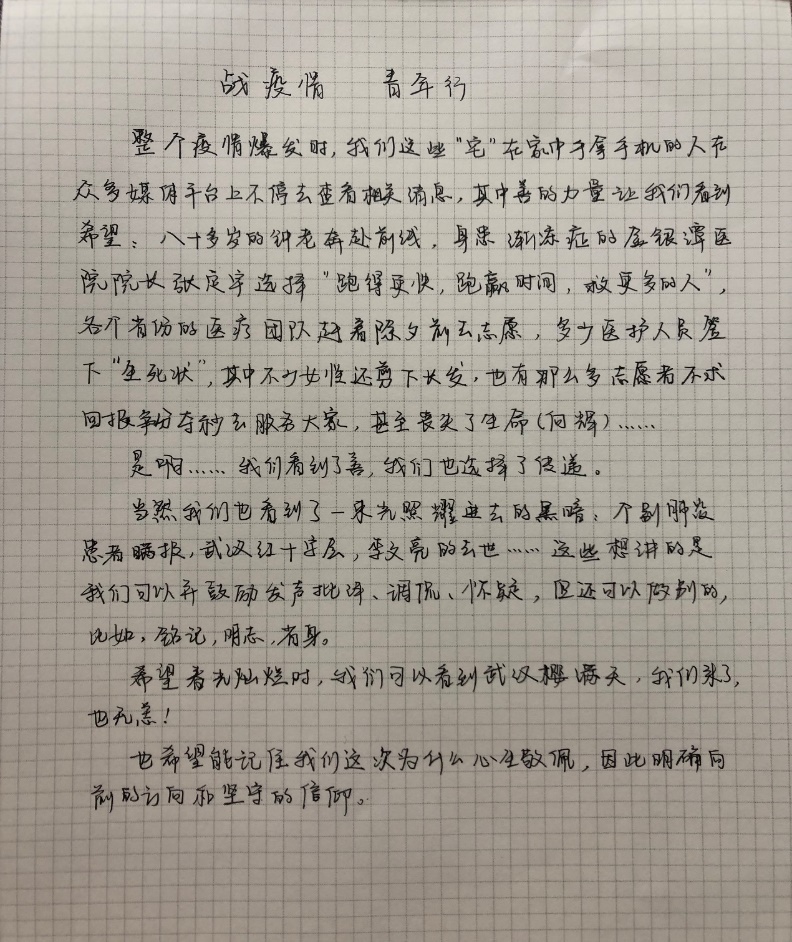 战疫情 青年行
整个疫情爆发时,我们这些"宅"在家中手拿手机的人在
众多媒体平台上不停去查看相关消息,其中善的力量让我们看到
希望:八十多岁的钟老奔赴前线,身患渐冻症的金银潭医
院院长张定宇选择"跑得更快,跑赢时间,救更多的人",
各个省份的医疗团队赶着除夕前去志愿,多少医护人员签
下"生死状",其中不少女性还剪下长发,也有那么多志愿者不求
回报争分夺秒去服务大家,甚至丧失了生命(何辉)……
是啊……我们看到了善,我们也选择了传递。
当然我们也看到了一束光照耀进去的黑暗:个别肺炎
患者瞒报,武汉红十字会,李文亮的去世……这些想讲的是
我们可以并鼓励发声批评、调侃、怀疑,但还可以做别的,
比如,铭记,明志,省身。
希望春光灿烂时,我们可以看到武汉樱满天,我们来了,
也无恙!
也希望能记住我们这次为什么心生敬佩,因此明确向
前的方向和坚守的信仰。